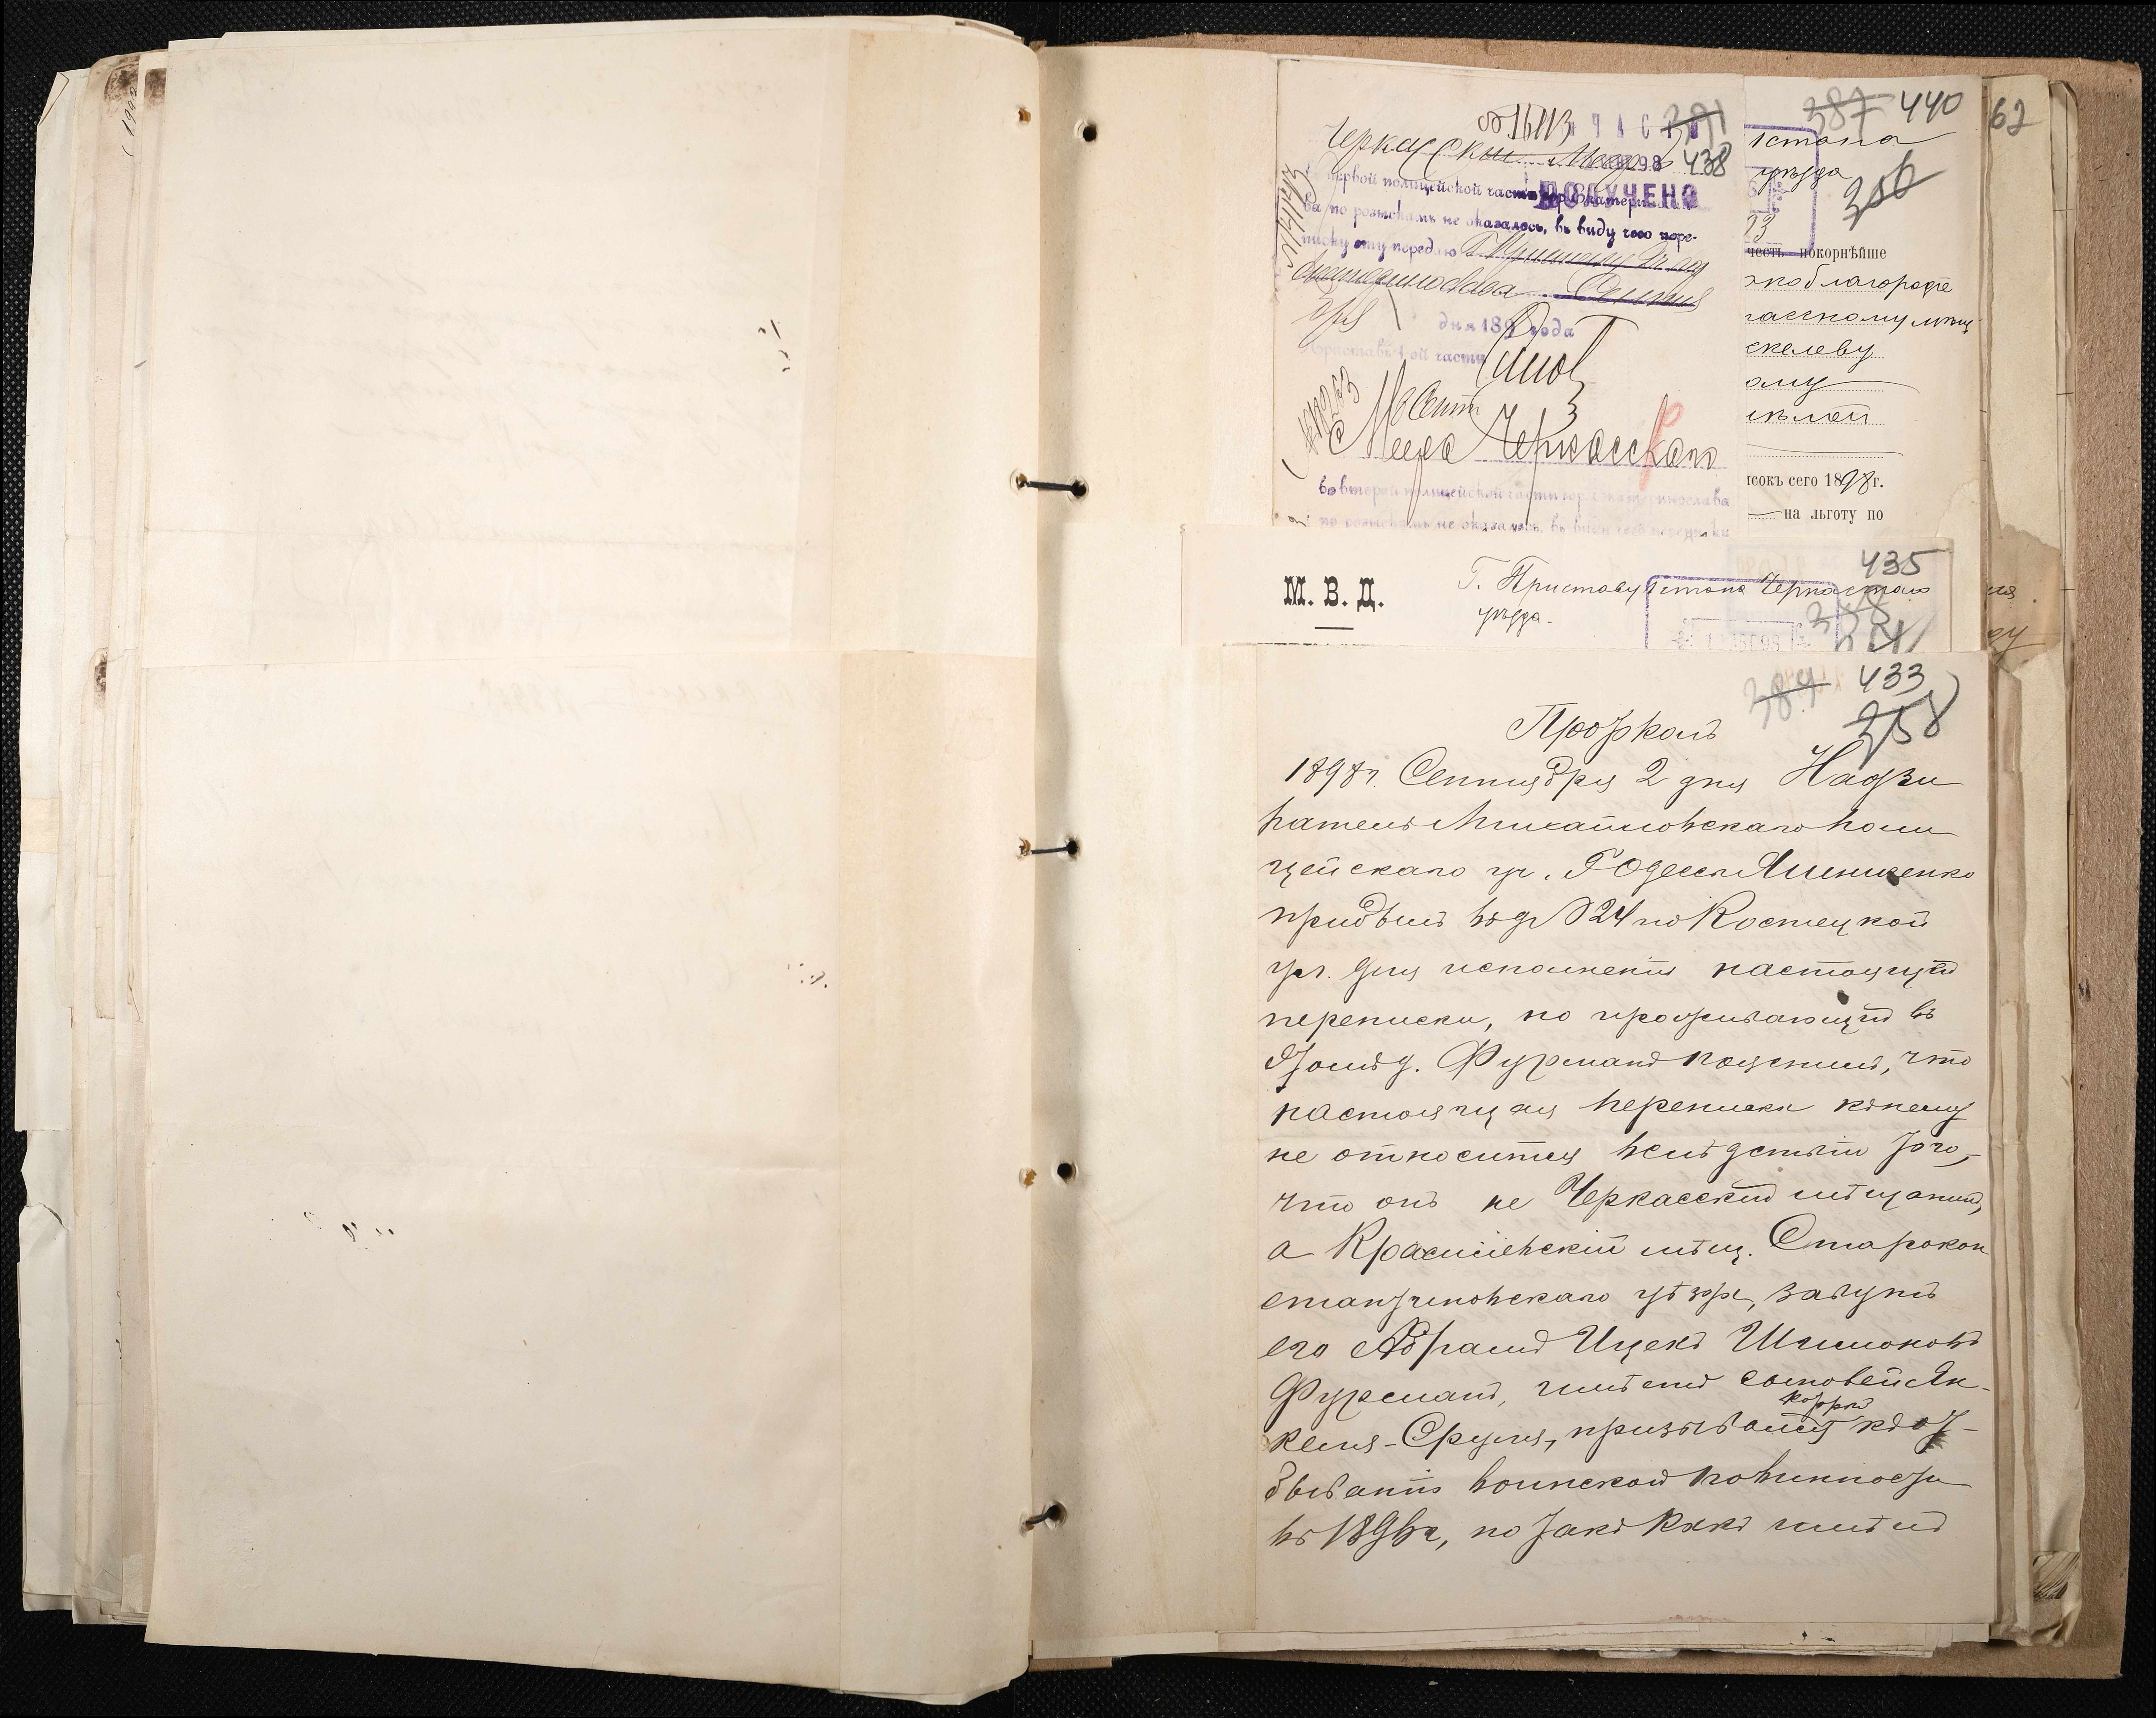 №16113 ЧАСТЬ 391
Черкасскій Мещ 98 438
первой полицейской части гор. Екатериносла
ПОЛУЧЕНО
ва по розыскамъ не оказалось, въ виду чего пере-
писку эту передаю
дня 189 года
Приставъ 1 ой части
Мещ. Черкасскаго
во второй полицейской части гор. Екатеринослава
по розыскамъ не оказалось, въ виду чего переписки
387 440
1 стана
уѣзда
356
честь покорнѣйше
скоблагородіе
касскому мѣщ
скелеву
ому
исокъ сего 1898 г.
на льготу по
62
435
М. В. Д.
Г. Приставу 1 стана Черкасскаго
уѣзда.
388
389 433
258
Протоколъ
1898 г. Сентября 2 дня Надзи
ратель Михайловскаго поли
цейскаго уч. г. Одессы
прибылъ въ д № 24 по Костецкой
ул. для исполненія настоящей
переписки, но проживающій въ
этомъ д. Фурманъ пояснилъ, что
настоящая переписка къ нему
не относится вслѣдствіи того,
что онъ не Черкасскій мѣщанинъ,
а Красиловскій мѣщ. Старокон
стантиновскаго уѣзда, зовутъ
его Абрамъ Ицекъ Шимоновъ
Фурманъ, имѣетъ сыновей Ян-
келя-Сруля, который
призывался къ от-
быванію воинской повинности
въ 1896 г, но такъ какъ имѣлъ